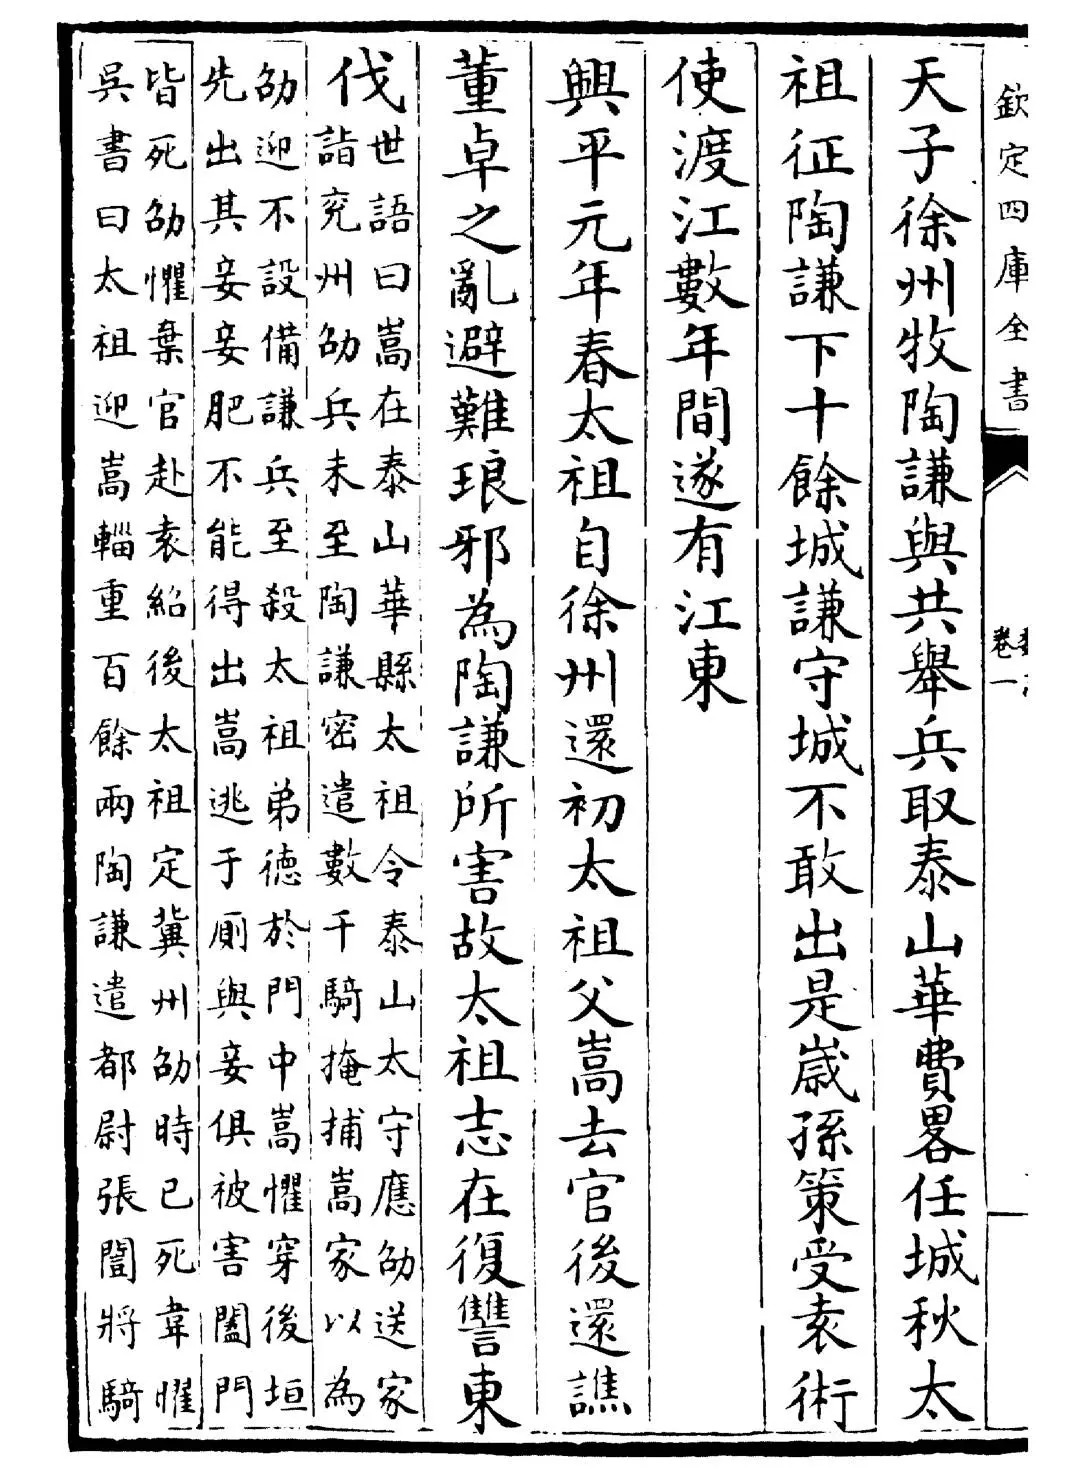 欽定四庫全書
卷一
天子徐州牧陶謙與共舉兵取泰山華費畧任城秋太
祖征陶謙下十餘城謙守城不敢出是歲孫策受袁術
使渡江數年間遂有江東
興平元年春太祖自徐州還初太祖父嵩去官後還譙
董卓之亂避難琅邪為陶謙所害故太祖志在復讐東
伐
世語曰嵩在泰山華縣太祖令泰山太守應劭送家
詣兖州劭兵未至陶謙密遣數千騎掩捕嵩家以為
劭迎不設備謙兵至殺太祖弟德於門中嵩懼穿後垣
先出其妾妾肥不能得出嵩逃于厠與妾俱被害闔門
皆死劭懼棄官赴袁紹後太祖定冀州劭時已死韋曜
吳書曰太祖迎嵩輜重百餘兩陶謙遣都尉張闓將騎